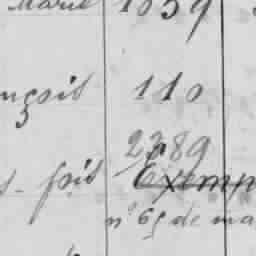 Marie 1059
nçois 110
2289
s - fois Exemp
n° 65 de ma